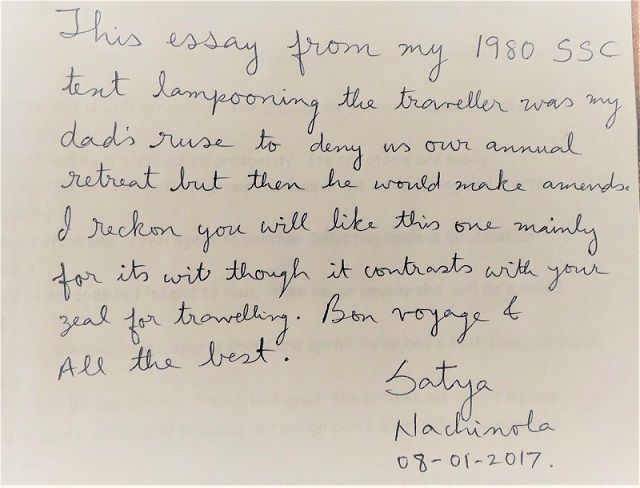 This essay from my 1980 SSC
text lampooning the traveller was my
dad's ruse to deny us our annual
retreat but then he would make amends.
I reckon you will like this one mainly
for its wit though it contrasts with your
zeal for travelling. Bon voyage &
All the best.
Satya
Nachinola
08-01-2017.